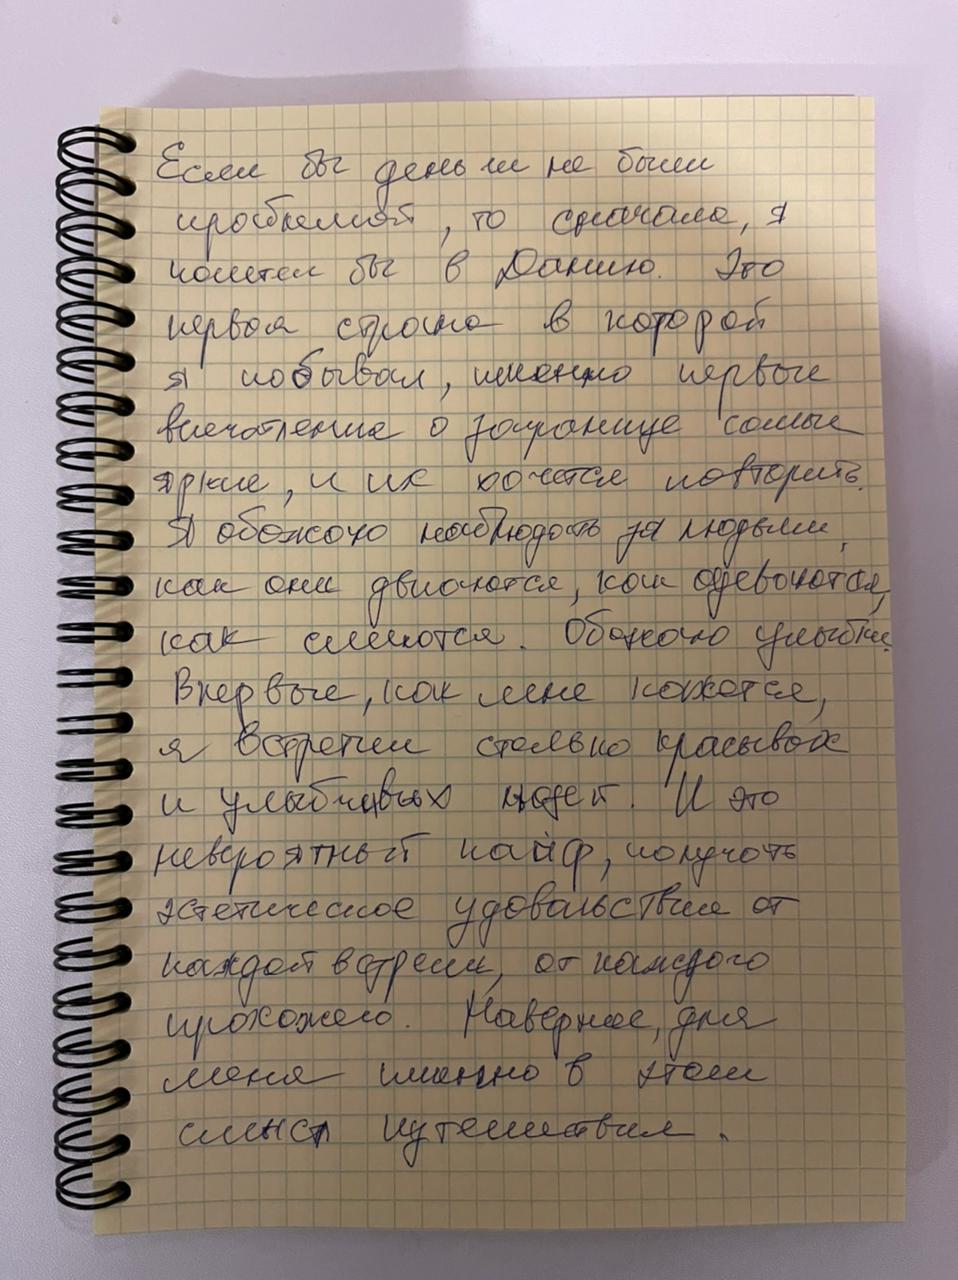 Если бы деньги не были
проблемой, то сначала, я
полетел бы в Данию. Это
первая страна в которой
я побывал, именно первые
впечатление о загранице самые
яркие, и их хочется повторить.
Я обожаю наблюдать за людьми,
как они двигаются, как одеваются,
как смеются. Обожаю улыбки.
Впервые, как мне кажется,
я встретил столько красивых
и улыбчивых людей. И это
невероятный кайф, получать
эстетическое удовольствие от
каждой встречи, от каждого
прохожего. Наверное, для
меня именно в этом
смысл путешествия.